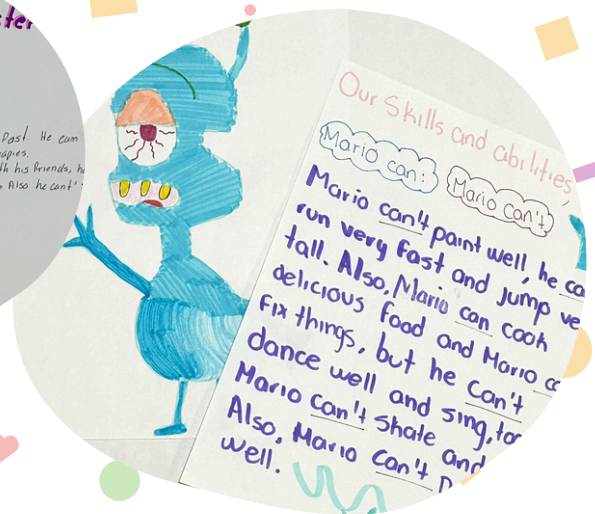 Past. He can
with his friends, h
Also he can't
Our Skills and abilities,
Mario can:
Mario Can't
Mario can't paint well, he ca
run very fast and jump ve
tall. Also, Mario can cook
delicious food and Mario c
fix things, but he can't
dance well and sing, to
Mario can't skate and
Also, Mario can't
well.